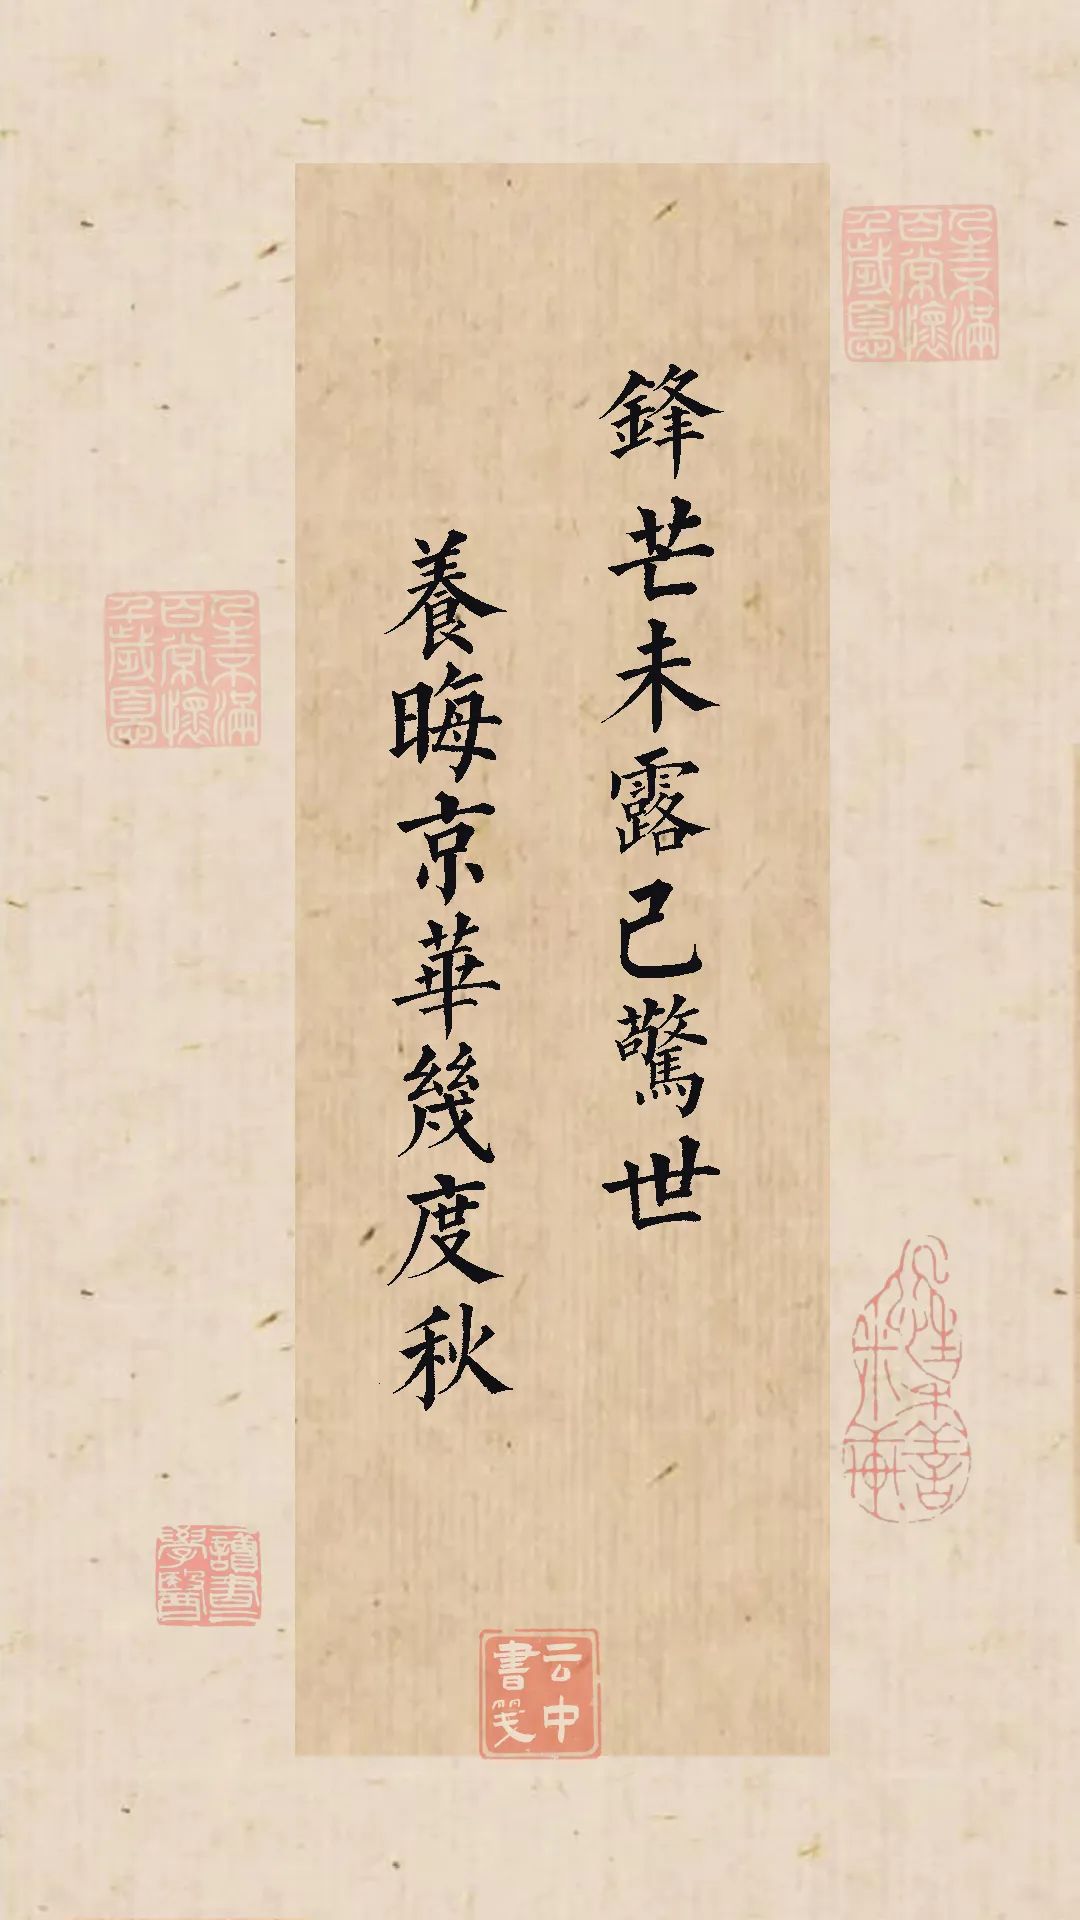 鋒芒未露已驚世
養晦京華幾度秋
云中
書箋
讀書
學醫